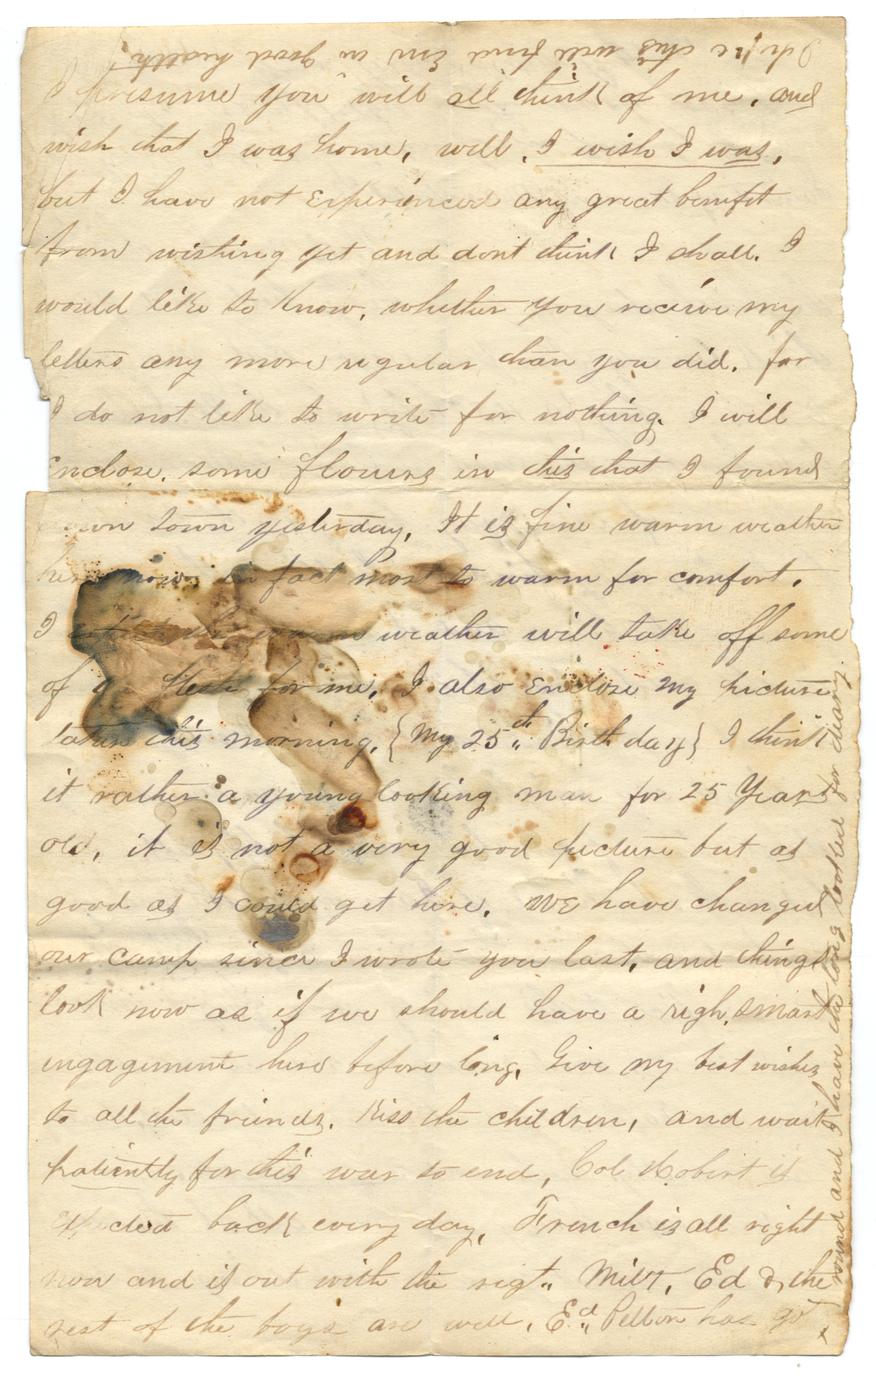 I presume you will all think of me, and
wish that I was home, well, I wish I was,
but I have not experienced any great benefit
from wishing yet and dont think I shall. I
would like to know, whether you receive my
letters any more regular than you did. for
I do not like to write for nothing. I will
Enclose. some flowers in this that I found
down town yesterday. It is fine warm weather
here now. in fact most to warm for comfort.
I warm weather will take off some
of flesh for me. I also Enclose my picture
taken this morning. {My 25th Birth day} I think
it rather a young looking man for 25 Years
old, it is not a very good picture but as
good as I could get here. We have changed
our camp since I wrote you last, and things
look now as if we should have a righ smart
engagement here before long. Give my best wishes
to all the friends. Kiss the children, and wait
patiently for this war to end, Col Robert is
expected back every day, French is all right
now and is out with the regt. Milt, Ed & the
rest of the boys are well, Ed Pelton has got
round and I have the long looked for diary.
I hope this will find Em in good health.